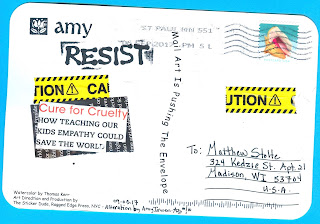 amy
RESIST
ST PAUL MN 551
2017 PM 5 L
TION CA
UTION
Cure for Cruelty
HOW TEACHING OUR
KIDS EMPATHY COULD
SAVE THE WORLD
Mail Art Is Pushing The Envelope
To: Matthew Stolte
324 Kedzie St. Apt 21
Madison, WI 53704
U.S.A.
Watercolor by Thomas Kerr
Art Direction and Production by
The Sticker Dude, Ragged Edge Press, NYC - Alteration by Amy